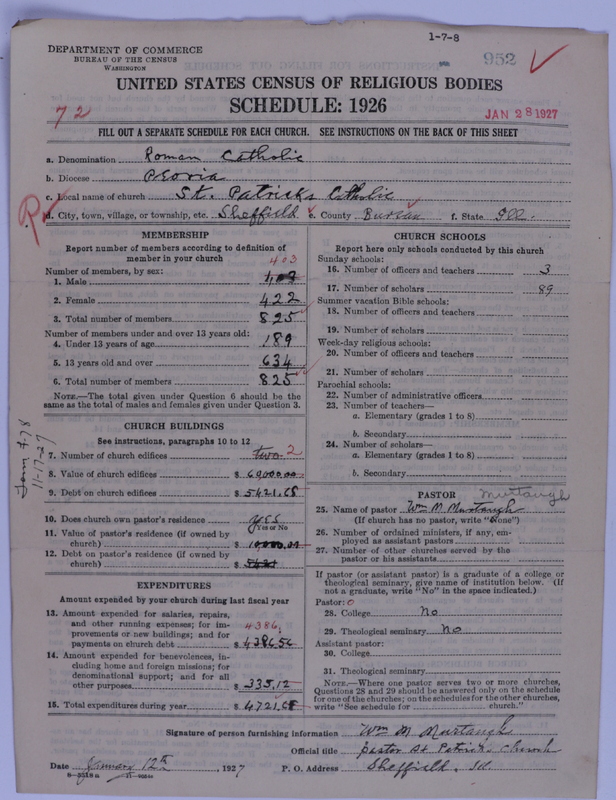 1-7-8
DEPARTMENT OF COMMERCE
BUREAU OF THE CENSUS
WASHINGTON
952
UNITED STATES CENSUS OF RELIGIOUS BODIES
SCHEDULE: 1926
72
JAN 28 1927
FILL OUT A SEPARATE SCHEDULE FOR EACH CHURCH. SEE INSTRUCTIONS ON THE BACK OF THIS SHEET
a. Denomination Roman Catholic
b. Diocese Peoria
c. Local name of church St. Patricks Catholic
d. City, town, village, or township, etc. Sheffield e. County Bureau f. State Ill.
MEMBERSHIP
Report number of members according to definition of
member in your church
403
Number of members, by sex:
1. Male 403
2. Female 422
3. Total number of members 825
Number of members under and over 13 years old:
4. Under 13 years of age 189
5. 13 years old and over 634
6. Total number of members 825
NOTE.—The total given under Question 6 should be the
same as the total of males and females given under Question 3.
CHURCH BUILDINGS
See instructions, paragraphs 10 to 12
7. Number of church edifices two 2
8. Value of church edifices $ 60000.00
9. Debt on church edifices $ 5421.68
10. Does church own pastor's residence yes
Yes or No
11. Value of pastor's residence (if owned by
church) $ 10000.00
12. Debt on pastor's residence (if owned by
church) $
EXPENDITURES
Amount expended by your church during last fiscal year
13. Amount expended for salaries, repairs,
and other running expenses; for im-
provements or new buildings; and for
payments on church debt $ 4386.56
4386.
14. Amount expended for benevolences, in-
cluding home and foreign missions; for
denominational support; and for all
other purposes $ 335.12
15. Total expenditures during year $ 4721.68
CHURCH SCHOOLS
Report here only schools conducted by this church
Sunday schools:
16. Number of officers and teachers 3
17. Number of scholars 89
Summer vacation Bible schools:
18. Number of officers and teachers
19. Number of scholars
Week-day religious schools:
20. Number of officers and teachers
21. Number of scholars
Parochial schools:
22. Number of administrative officers
23. Number of teachers—
a. Elementary (grades 1 to 8)
b. Secondary
24. Number of scholars—
a. Elementary (grades 1 to 8)
b. Secondary
PASTOR
Murtaugh
25. Name of pastor Wm M. Murtaugh
(If church has no pastor, write "None")
26. Number of ordained ministers, if any, em-
ployed as assistant pastors
27. Number of other churches served by the
pastor or his assistants
If pastor (or assistant pastor) is a graduate of a college or
theological seminary, give name of institution below. (If
not a graduate, write "No" in the space indicated.)
Pastor: 0
28. College No
29. Theological seminary No
Assistant pastor:
30. College
31. Theological seminary
NOTE.—Where one pastor serves two or more churches,
Questions 28 and 29 should be answered only on the schedule
for one of the churches; on the schedules for the other churches,
write "See schedule for church."
Signature of person furnishing information Wm M Murtaugh
Official title Pastor St Patricks Church
Date January 12th, 1927 P. O. Address Sheffield. Ill
11-17-27